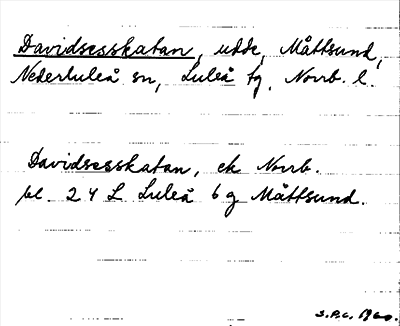 Davidsesskatan, udde, Måttsund,
Nederluleå sn, Luleå tg, Norrb. l.
Davidsesskatan, ek Norrb.
bl. 24 L Luleå 6 g Måttsund.
S.P.C. 1960.